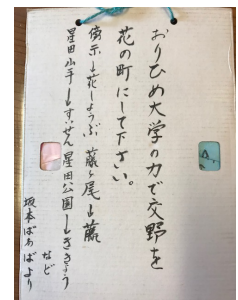 おりひめ大学の力で交野を
花の町にして下さい。
傍示→花しょうぶ 藤が尾→藤
星田山手→すいせん 星田公園→ききょう
など
坂本ばあばより